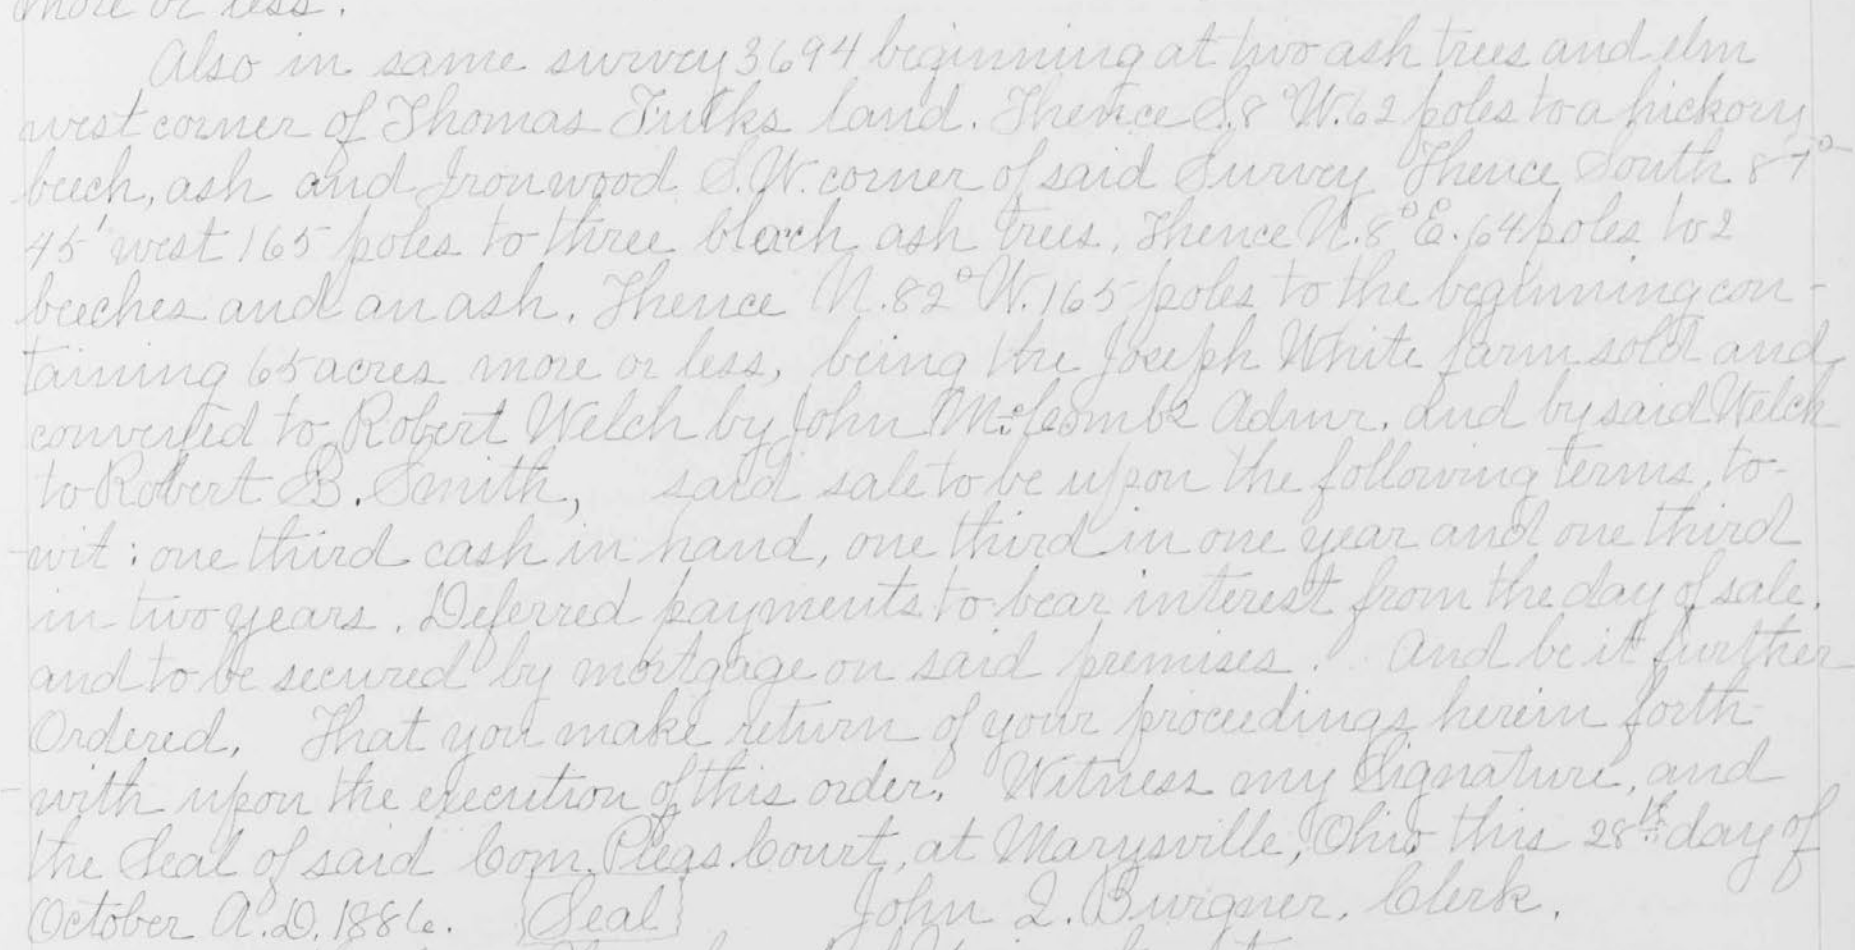 more or less.
Also in same survey 3694 beginning at two ash trees and elm
west corner of Thomas Fulks land. Thence S.8°W.62 poles to a hickory
beech, ash and Ironwood S.W. corner of said Survey Thence South 87°
45' west 165 poles to three black ash trees, Thence N.8°E.64 poles to 2
beeches and an ash. Thence N.82°W.165 poles to the beginning con-
taining 65 acres more or less, being the Joseph White farm sold and
conveyed to Robert Welch by John Admr. and by said Welch
to Robert B. Smith, said sale to be upon the following terms, to-
wit: one third cash in hand, one third in one year and one third
in two years. Deferred payments to bear interest from the day of sale.
and to be secured by mortgage on said premises. And be it further
Ordered, That you make return of your proceedings herein forth-
with upon the execution of this order. Witness my Signature, and
the Seal of said Com. Pleas. Court, at Marysville, Ohio this 28th day of
October A.D. 1886. Seal John Q. Burgner, Clerk.